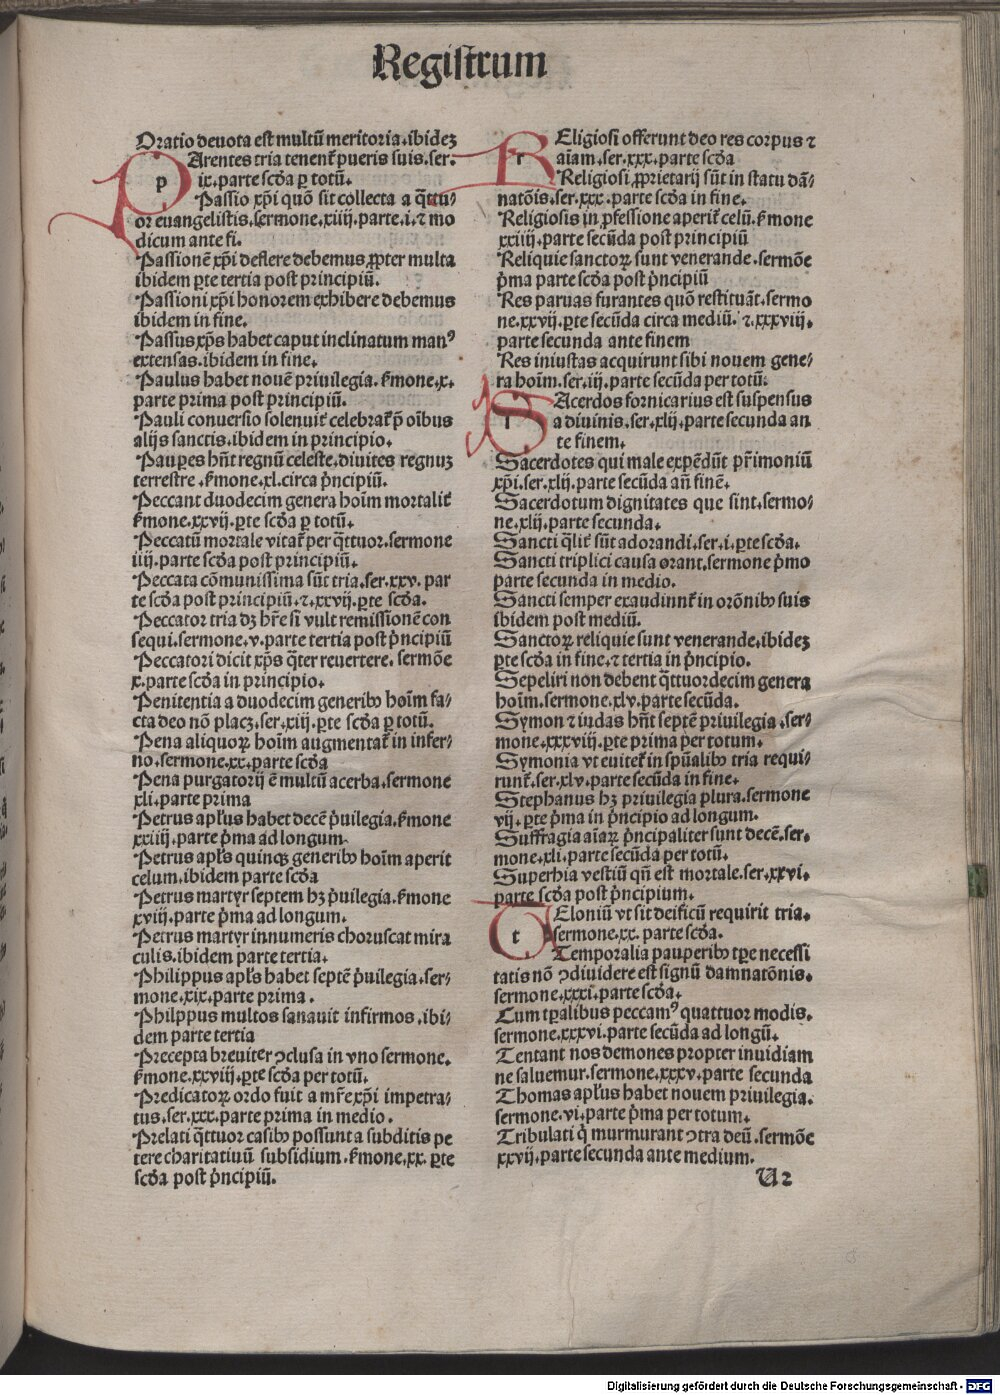 Registrum
Oratio deuota est multū meritoria.ibideꝫ
PArentes tria tenent᷑ pueris suis.ser-
ix.parte scd̄a ꝑ totū.
Passio xp̄i quō sit collecta a q̄ttu-
or euangelistis.sermone.xiiij.parte.i.⁊ mo
dicum ante fi.
Passionē xp̄i deflere debemus ꝓpter multa
ibidem ꝑte tertia post principiū.
Passioni xp̄i honorem exhibere debemus
ibidem in fine.
Passus xp̄s habet caput inclinatum manꝰ
extensas.ibidem in fine.
Paulus habet nouē priuilegia.ẜmone.x.
parte prima post principiū.
Pauli conuersio solenuit᷑ celebrat᷑ p̄ oībus
alijs sanctis.ibidem in principio.
Pauꝑes hn̄t regnū celeste.diuites regnuꝫ
terrestre .ẜmone.xl.circa pͥncipiū.
Peccant duodecim genera hoīm mortalit᷑
ẜmone.xxvij.ꝑte scd̄a ꝑ totū.
Peccatū mortale vitat᷑ per q̄ttuor.sermone
iiij.parte scd̄a post principiū.
Peccata cōmunissima sūt tria.ser.xxv.par
te scd̄a post principiū.⁊.xxvij.ꝑte scd̄a.
Peccator tria dꝫ hr̄e si vult remissionē con
sequi.sermone.v.parte tertia post pͥncipiū
Peccatori dicit xp̄s q̄ter reuertere. sermōe
x.parte scd̄a in principio.
Penitentia a duodecim generibꝰ hoīm fa-
cta deo nō placꝫ.ser.xiij.ꝑte scd̄a ꝑ totū.
Pena aliquoꝝ hoīm augmentat᷑ in infer-
no.sermone.xx.parte scd̄a
Pena purgatorij ē multū acerba.sermone
xli.parte prima
Petrus apl̄us habet decē pͥuilegia.ẜmone
xxiiij.parte pͥma ad longum.
Petrus apl̄s quinqꝫ generibꝰ hoīm aperit
celum.ibidem parte scd̄a
Petrus martyr septem hꝫ pͥuilegia.ẜmone
xviij.parte pͥma ad longum.
Petrus martyr innumeris choruscat mira
culis.ibidem parte tertia.
Philippus apl̄s habet septē pͥuilegia.ser-
mone.xix.parte prima.
Philppus multos sanauit infirmos.ibi-
dem parte tertia
Precepta breuiter ↄclusa in vno sermone.
ẜmone.xxviij.ꝑte scd̄a per totū.
Predicatoꝝ ordo fuit a mr̄e xp̄i impetra-
tus.ser.xxx.parte prima in medio.
Prelati q̄ttuor casibꝰ possunt a subditis pe
tere charitatiuū subsidium.ẜmone.xx.ꝑte
scd̄a post pͥncipiū.
REligiosi offerunt deo res corpus ⁊
aīam.ser.xxx.parte scd̄a
Religiosi ꝓprietarij sūt in statu dā-
natōis.ser.xxx.parte scd̄a in fine.
Religiosis in ꝓfessione aperit᷑ celū.ẜmone
xxiiij.parte secūda post principiū
Reliquie sanctoꝝ sunt venerande.sermōe
pͥma parte scd̄a post pͥncipiū
Res paruas furantes quō restituāt.sermo
ne.xxvij.ꝑte secūda circa mediū.⁊.xxxviij.
parte secunda ante finem
Res iniustas acquirunt sibi nouem gene-
ra hoīm.ser.iij.parte secūda per totū.
SAcerdos fornicarius est suspensus
a diuinis.ser.xlij.parte secunda an
te finem.
Sacerdotes qui male expēdūt pr̄imoniū
xp̄i.ser.xlij.parte secūda an̄ finē.
Sacerdotum dignitates que sint.sermo-
ne.xlij.parte secunda.
Sancti q̄lit᷑ sūt adorandi.ser.i.ꝑte scd̄a.
Sancti triplici causa orant.sermone pͥmo
parte secunda in medio.
Sancti semper exaudiunt᷑ in orōnibꝰ suis
ibidem post mediū.
Sanctoꝝ reliquie sunt venerande.ibideꝫ
ꝑte scd̄a in fine.⁊ tertia in pͥncipio.
Sepeliri non debent q̄ttuordecim genera
hoīm.sermone.xlv.parte secūda.
Symon ⁊ iudas hn̄t septē priuilegia.ser-
mone.xxxviij.ꝑte prima per totum.
Symonia vt euitet᷑ in spūalibꝰ tria requi-
runt᷑.ser.xlv.parte secūda in fine.
Stephanus hꝫ priuilegia plura.sermone
vij.ꝑte pͥma in pͥncipio ad longum.
Suffragia aīaꝝ pͥncipaliter sunt decē.ser.
mone.xli.parte secūda per totū.
Superbia vestiū qn̄ est mortale.ser.xxvi.
parte scd̄a post pͥncipium.
TEloniū vt sit deificū requirit tria.
sermone.xx.parte scd̄a.
Temporalia pauperibꝰ tꝑe necessi
tatis nō ↄdiuidere est signū damnatōnis.
sermone.xxxi.parte scd̄a.
Cum tꝑalibus peccamꝰ quattuor modis.
sermone.xxxvi.parte secūda ad longū.
Tentant nos demones propter inuidiam
ne saluemur.sermone.xxxv.parte secunda
Thomas apl̄us habet nouem priuilegia.
sermone.vi.parte pͥma per totum.
Tribulati qͥ murmurant ↄtra deū.sermōe
xxvij.parte secunda ante medium.
U2
Digitalisierung gefördert durch die Deutsche Forschungsgemeinschaft - DFG